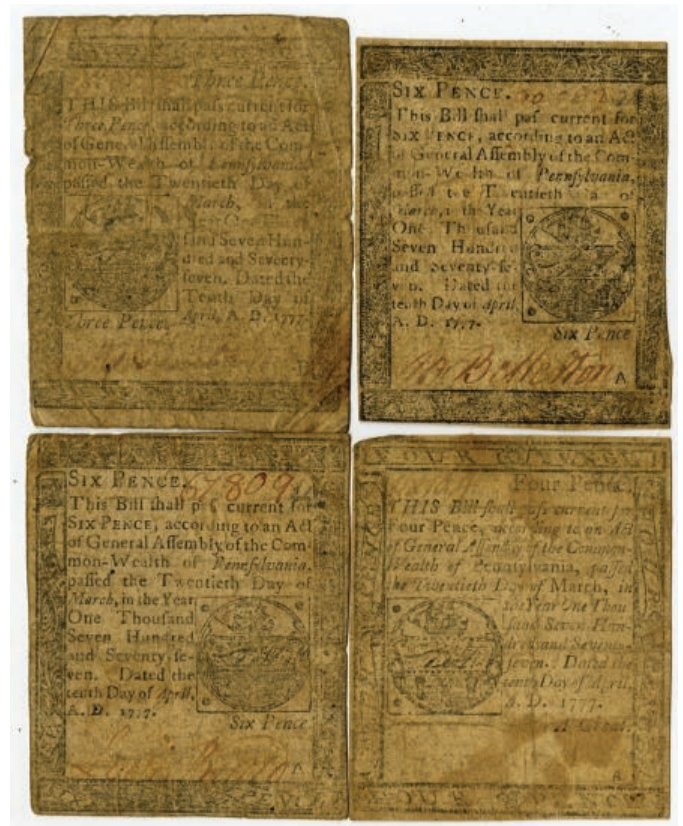 Three Pence.
THIS Bill shall pass current for
Three Pence, according to an Act
of General Assembly of the Com-
mon-Wealth of Pennsylvania,
passed the Twentieth Day of
March, in the
sand Seven Hun-
dred and Seventy-
seven. Dated the
Tenth Day of
April, A. D. 1777.
Three Pence.
SIX PENCE.
This Bill shall pass current for
SIX PENCE, according to an Act
of General Assembly of the Com-
mon-Wealth of Pennsylvania,
passed the Twentieth Day of
March, in the Year
One Thousand
Seven Hundred
and Seventy-se-
ven. Dated the
tenth Day of April,
A. D. 1777.
Six Pence
A
SIX PENCE. 57809
This Bill shall pass current for
SIX PENCE, according to an Act
of General Assembly of the Com-
mon-Wealth of Pennsylvania,
passed the Twentieth Day of
March, in the Year
One Thousand
Seven Hundred
and Seventy-se-
ven. Dated the
tenth Day of April,
A. D. 1777.
Six Pence
A
Four Pence.
THIS Bill shall pass current for
Four Pence, according to an Act
of General Assembly of the Common-
Wealth of Pennsylvania, passed
the Twentieth Day of March, in
the Year One Thou
sand Seven Hun-
dred and Seventy-
seven. Dated the
tenth Day of April,
A. D. 1777.
A Groat.